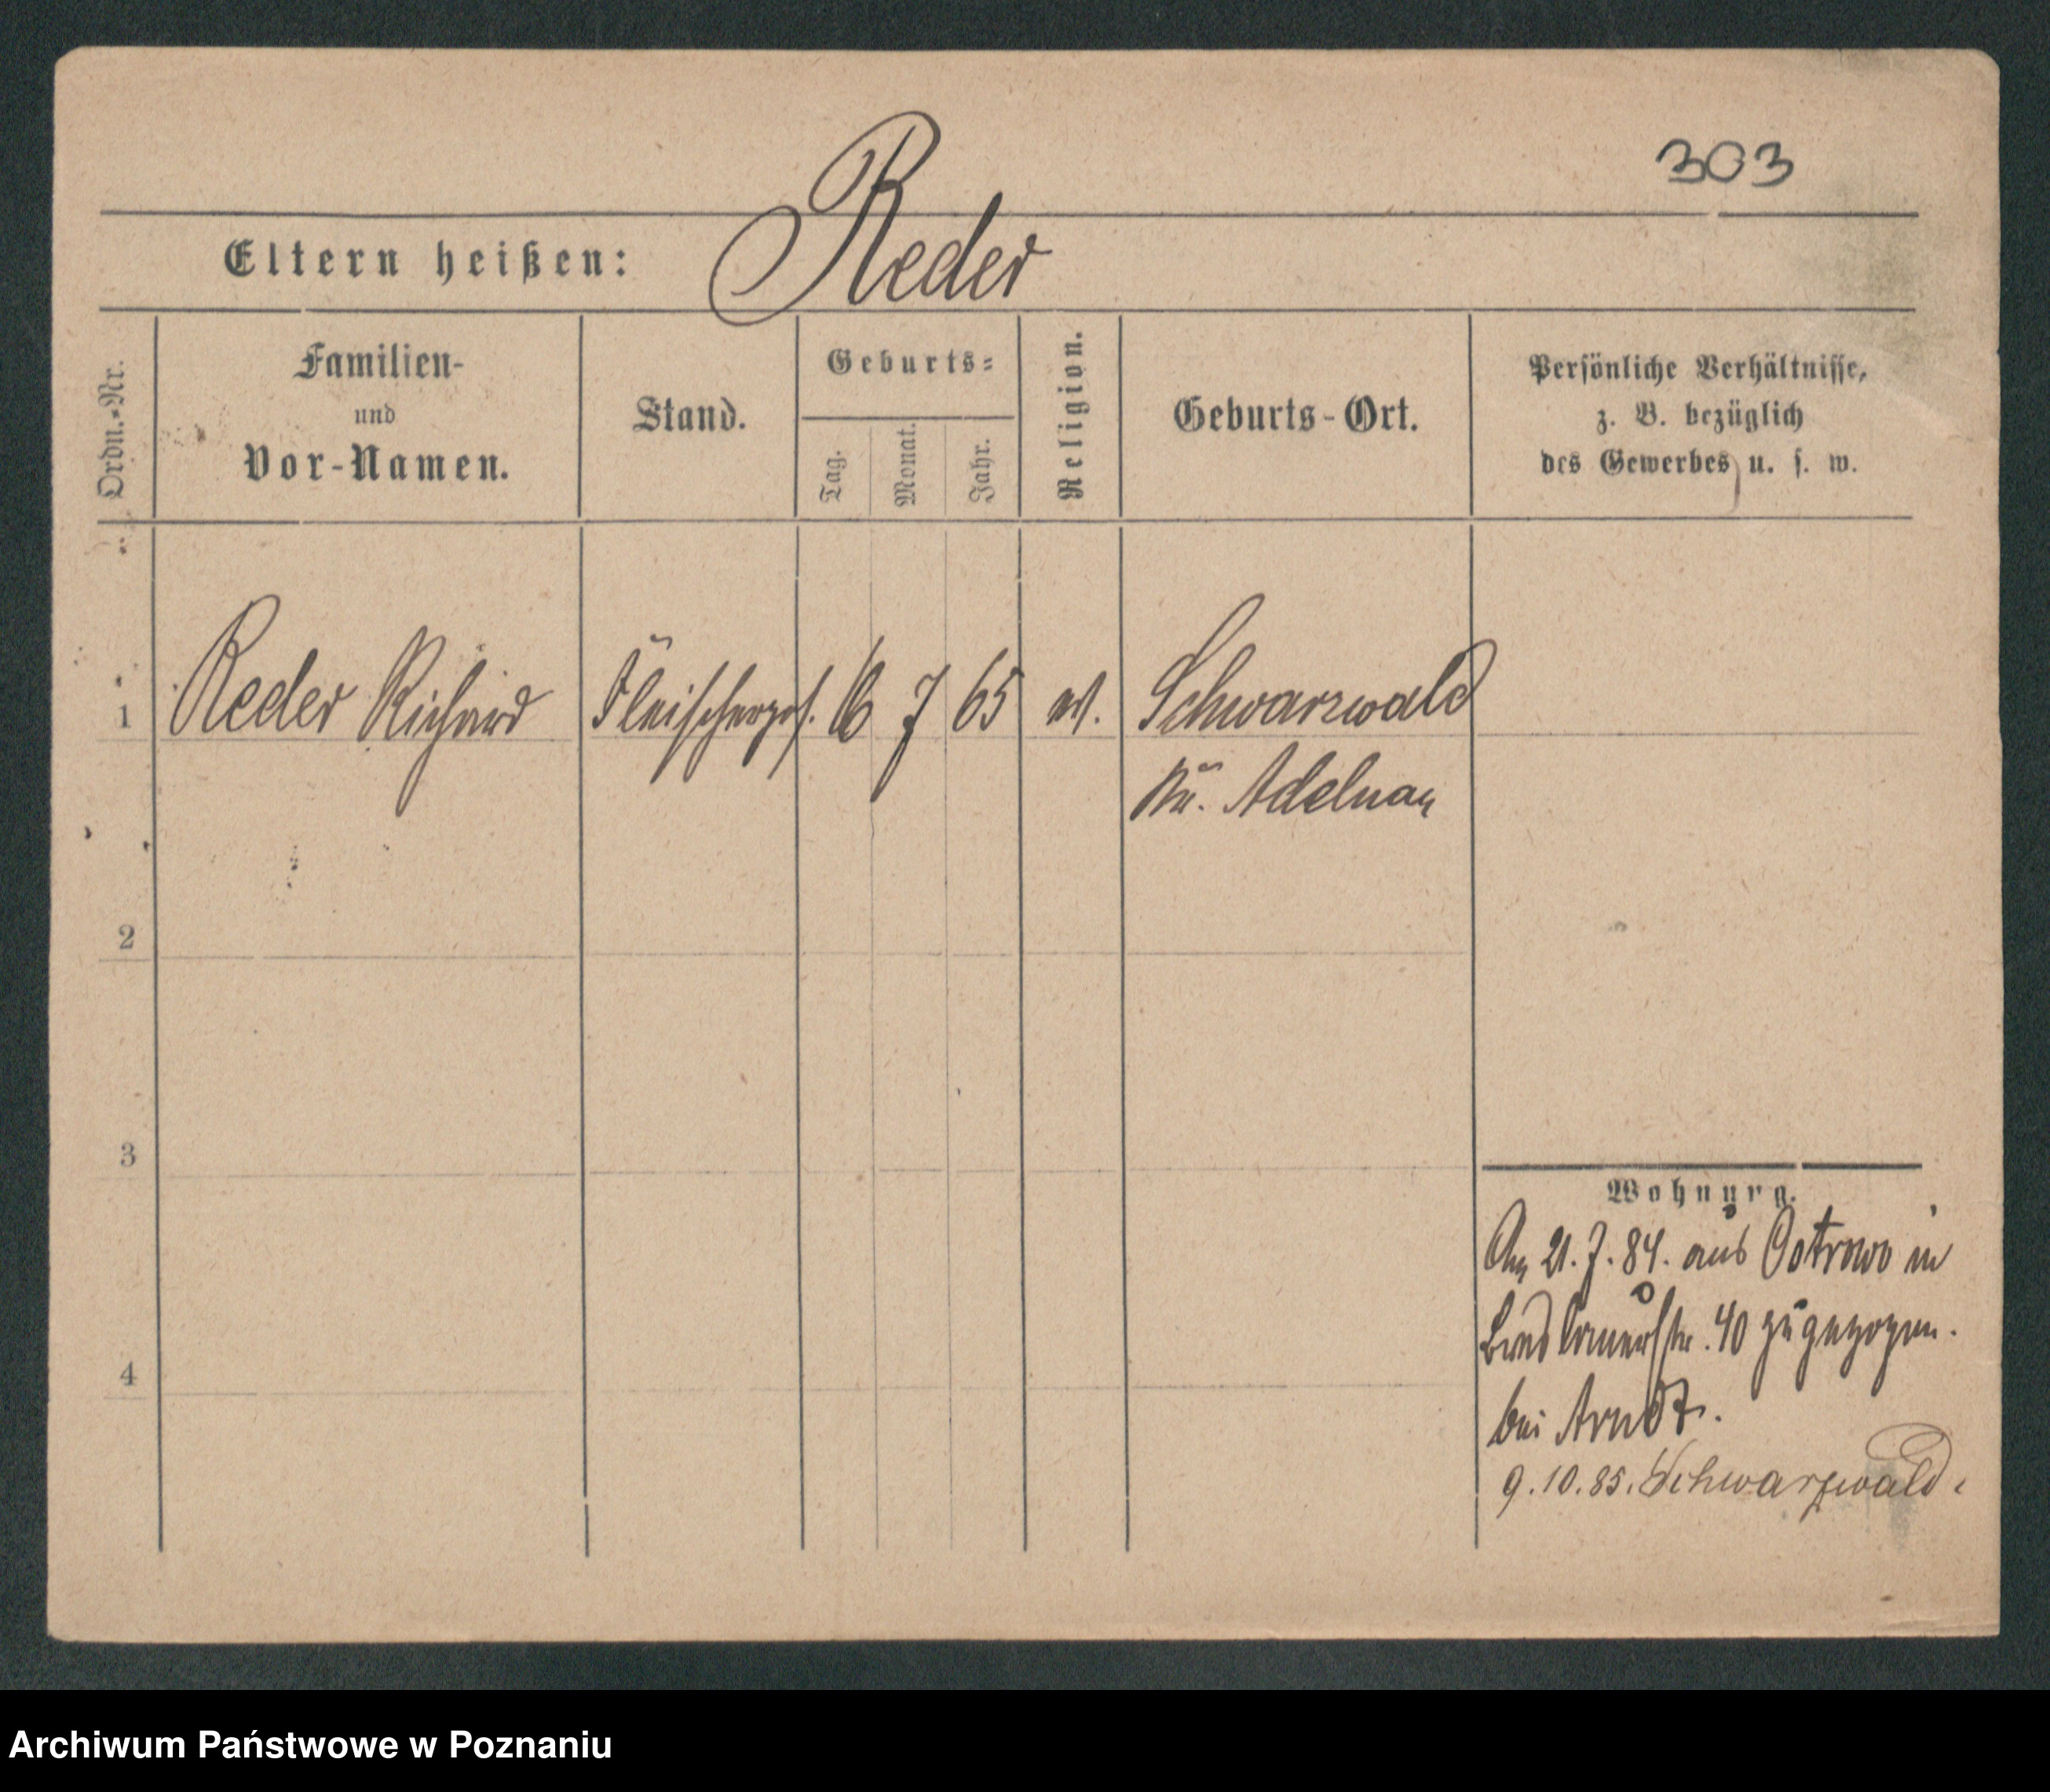 303
Eltern heißen: Reder
Ordn.-Nr.
Familien-
und
Vor-Namen.
Stand.
Geburts-
Tag.
Monat.
Jahr.
Religion.
Geburts-Ort.
Persönliche Verhältnisse,
z. B. bezüglich
des Gewerbes u. s. w.
1 Reder Richard Fleischerges. 16 7 65 ev. Schwarzwald
Kr. Adelnau
2
3
4
Wohnung.
Am 21. 7. 84. aus Ostrowo in
Breslauerstr. 40 zugezogen.
bei Arndt.
9. 10. 85. Schwarzwald.
Archiwum Państwowe w Poznaniu